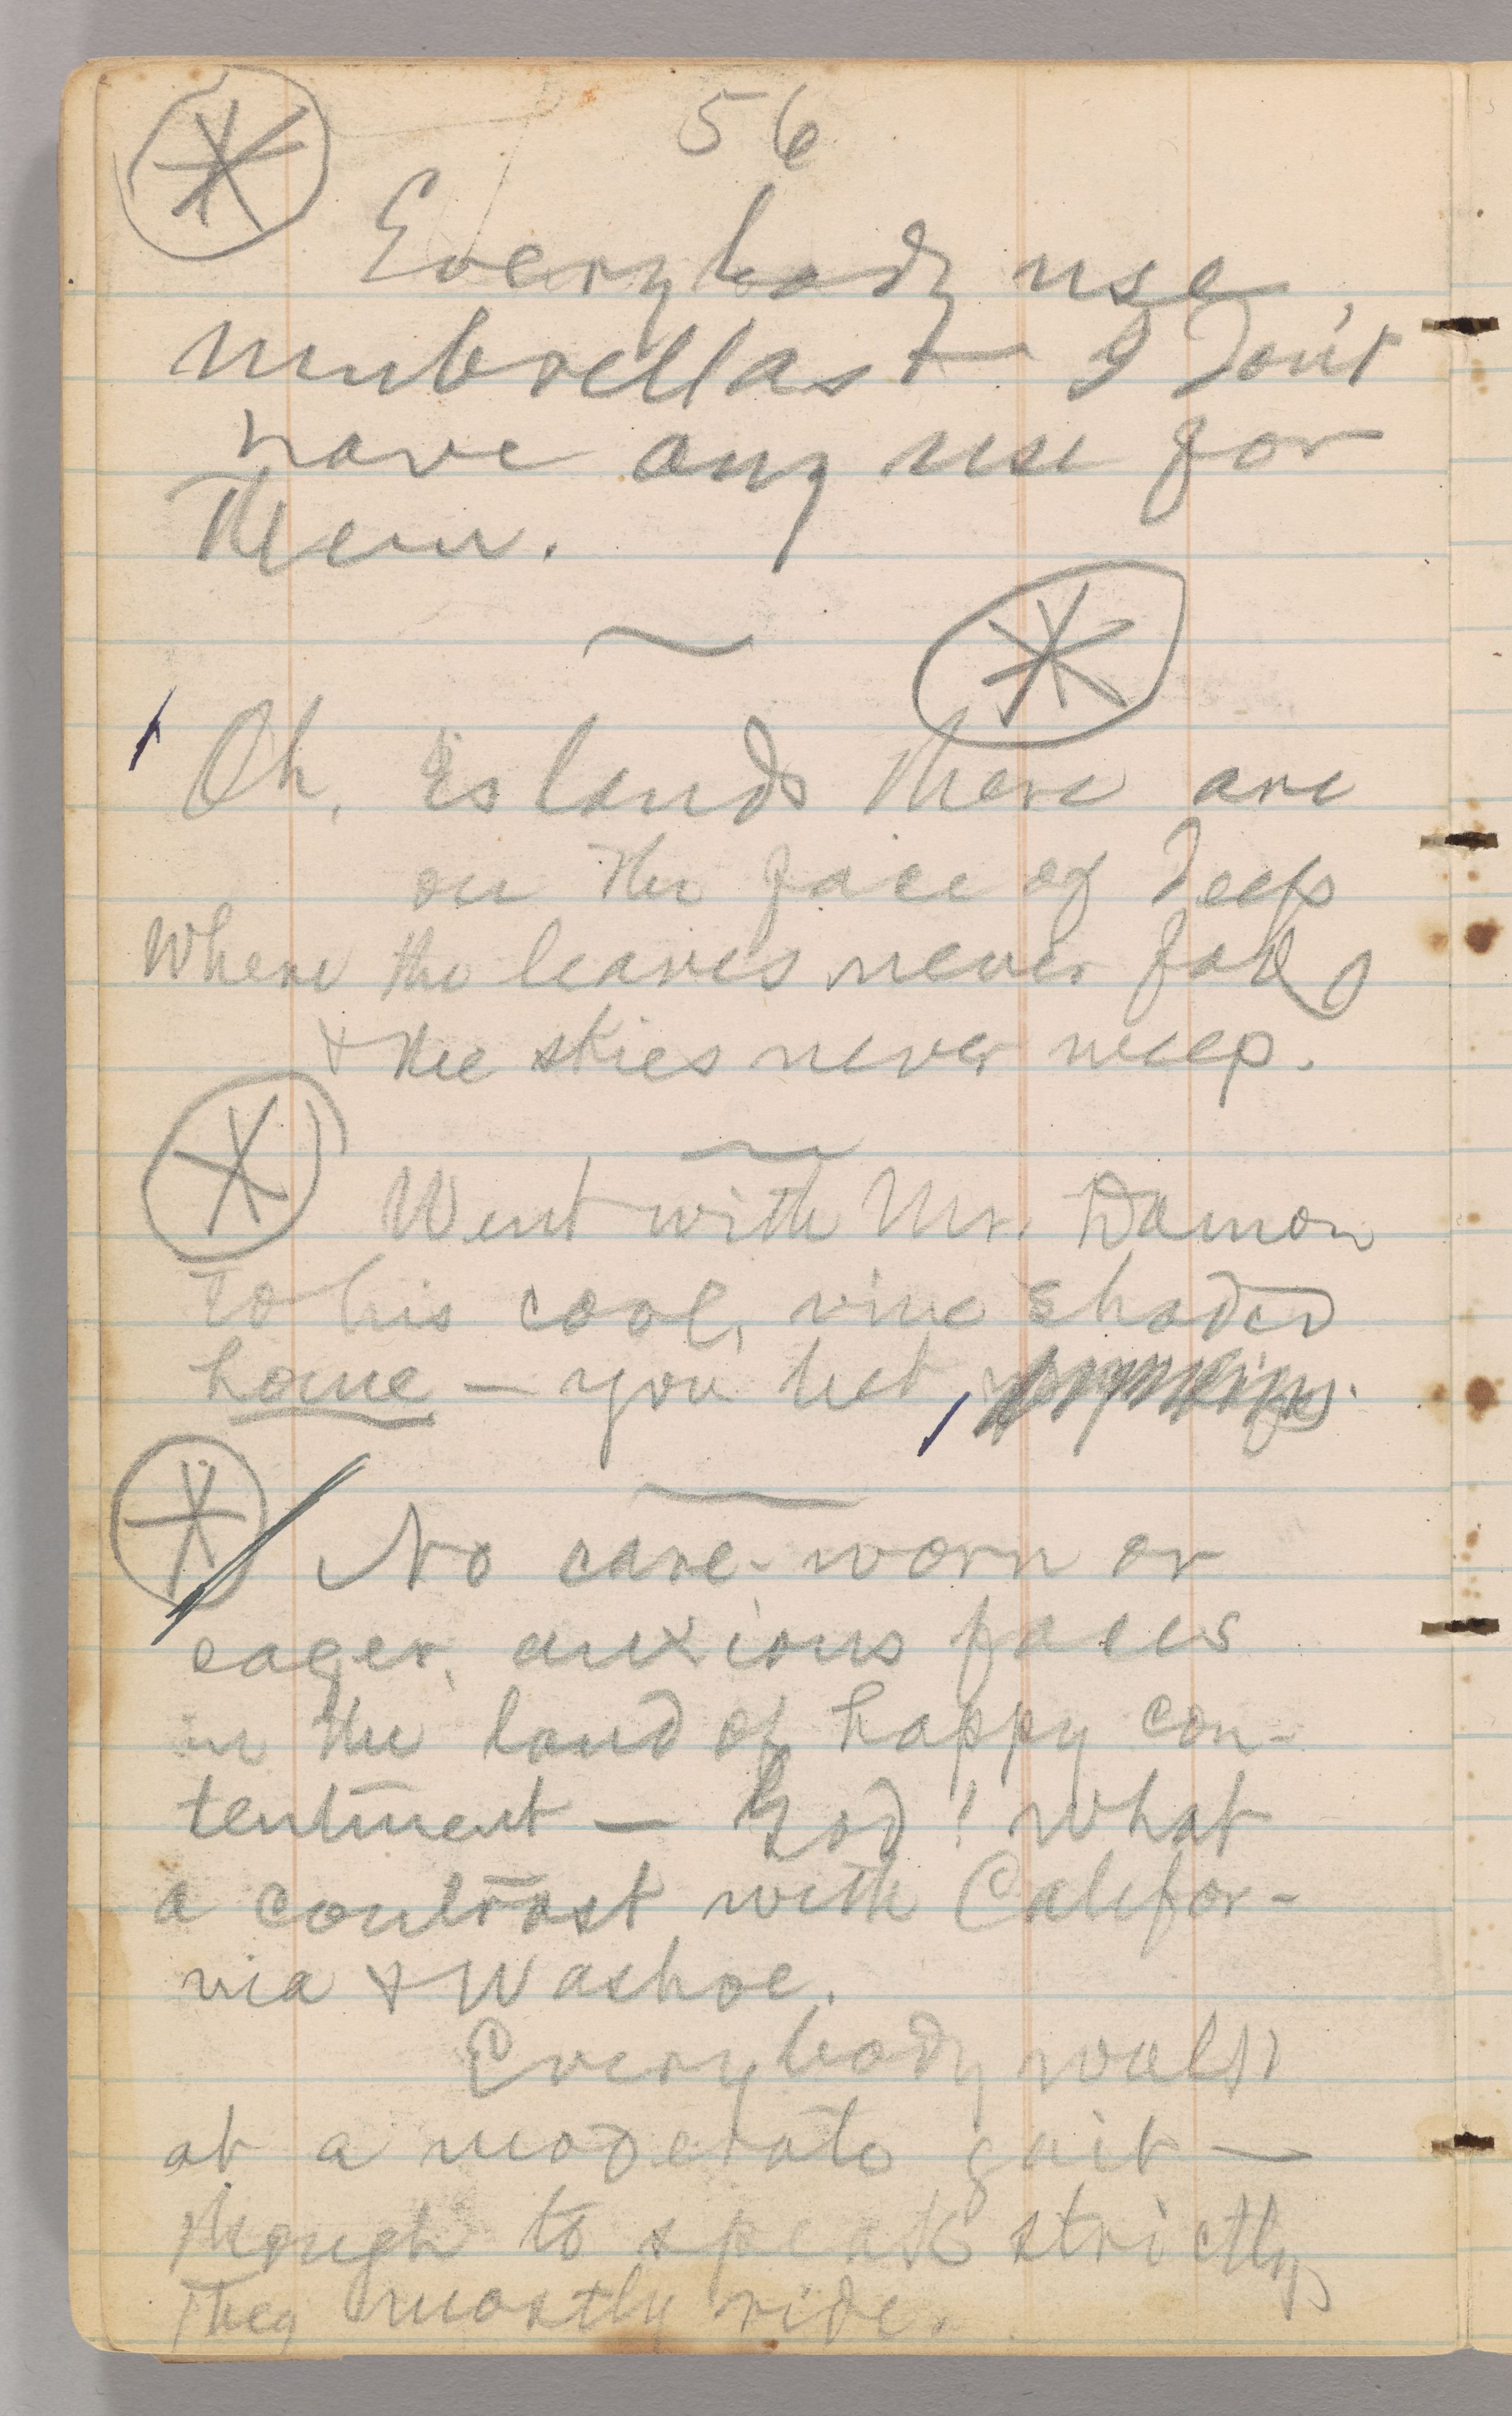 56
Everybody use
umbrellas & I don't
have any use for
them.
Oh, Islands there are
on the face of deep
Where the leaves never fade
& the skies never weep.
Went with Mr. Damon
to his cool, vine shaded
home — you bet
No care-worn or
eager, anxious faces
in the land of happy con-
tentment — God! what
a contrast with Califor-
nia & Washoe.
Everybody walks
at a moderate gait —
though to speak strictly,
they mostly ride.